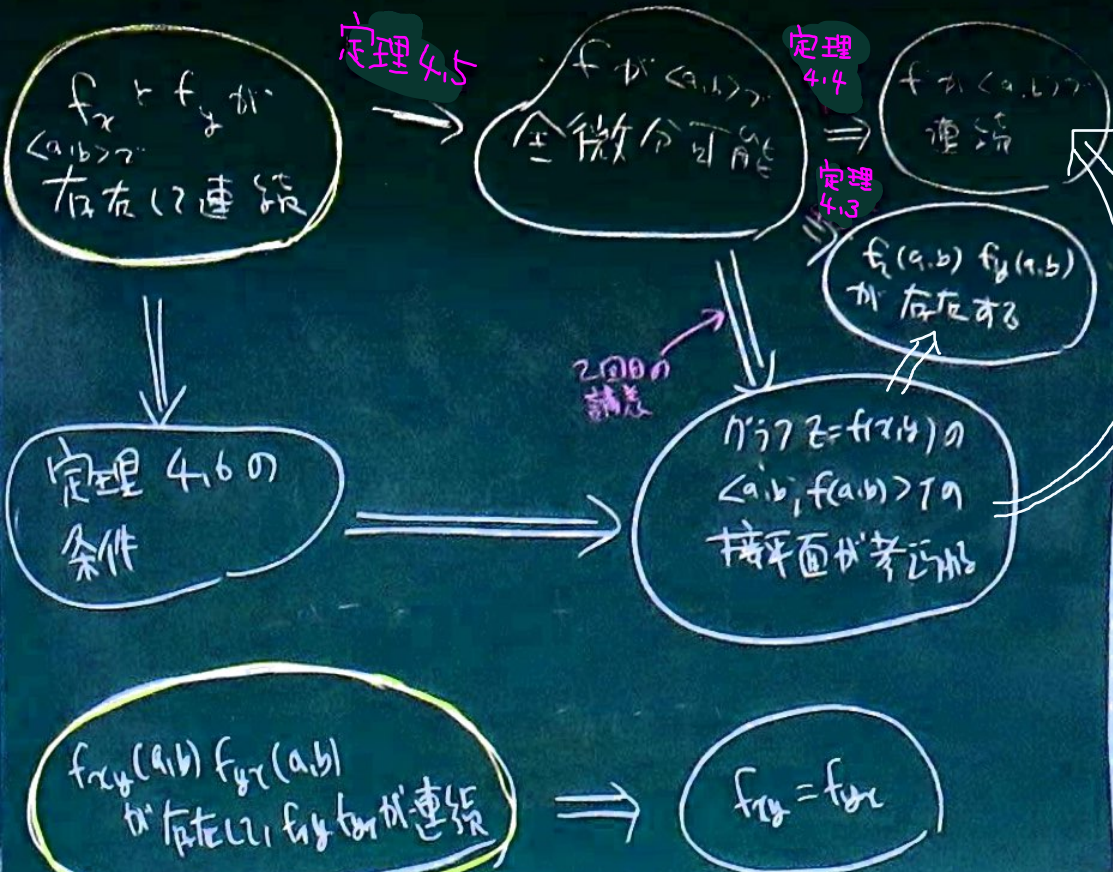 fx と fy が
<a,b>で
存在して連続
定理4.5
f が <a,b>で
全微分可能
定理
4.4
f が <a,b>で
連続
定理
4.3
fx(a,b) fy(a,b)
が存在する
2回目の
講義
グラフ z=f(x,y)の
<a,b,f(a,b)>での
接平面が考えられる
定理 4.6の
条件
fxy(a,b) fyx(a,b)
が存在して, fxy fyxが連続
fxy=fyx